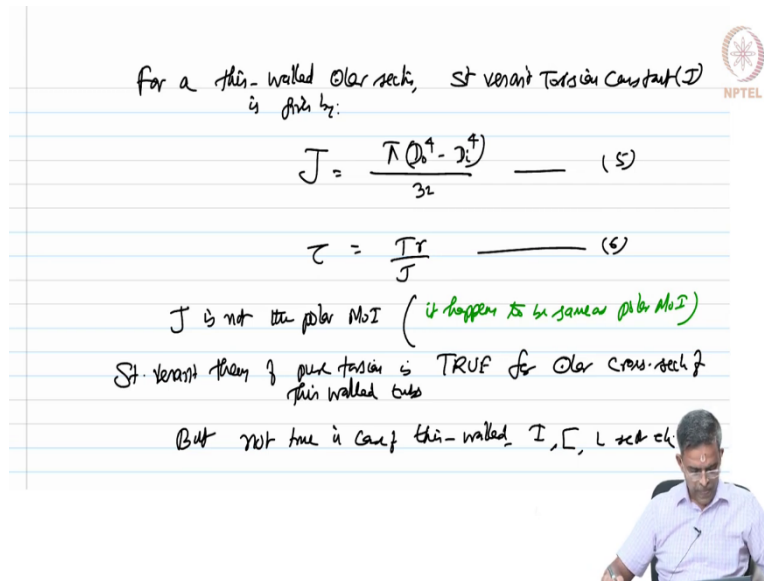 For a thin-walled Olar sectn, St venant Torsion Constant (J)
is given by:
NPTEL
J = π(D₀⁴ - Dᵢ⁴) / 32 —— (5)
τ = Tr / J —— (6)
J is not the polar MoI (it happens to be same as polar MoI)
St. Venant theory of pure torsion is TRUE for Olar cross-sech of
thin walled tubes
But not true in case of thin-walled I, [, L sectn etc